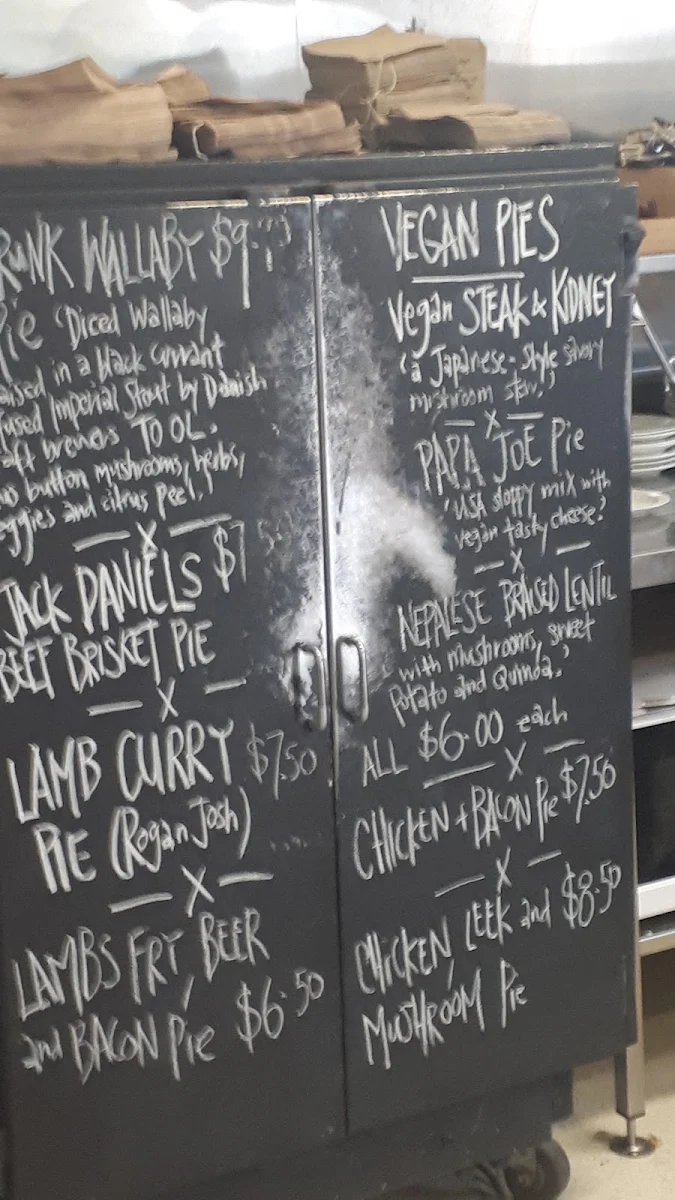 RUNK WALLABY $9.
Pie 'Diced Wallaby
aised in a black currant
fused Imperial Stout by Danish
aft brewers TO OL.
us button mushrooms, herbs,
eggies and citrus peel.'
X
JACK DANIELS $7
BEEF BRISKET PIE
X
LAMB CURRY $7.50
PIE (Rogan Josh)
X
LAMBS FRY BEER
and BACON Pie $6.50
VEGAN PIES
Vegan STEAK & KIDNEY
'a Japanese-Style savory
mushroom stew.'
X
PAPA JOE Pie
'USA sloppy mix with
vegan tasty cheese.'
X
NEPALESE BRAISED LENTIL
with mushrooms, sweet
Potato and Quinoa.'
ALL $6.00 each
X
CHICKEN + BACON Pie $7.50
X
CHICKEN, LEEK and $8.50
MUSHROOM Pie